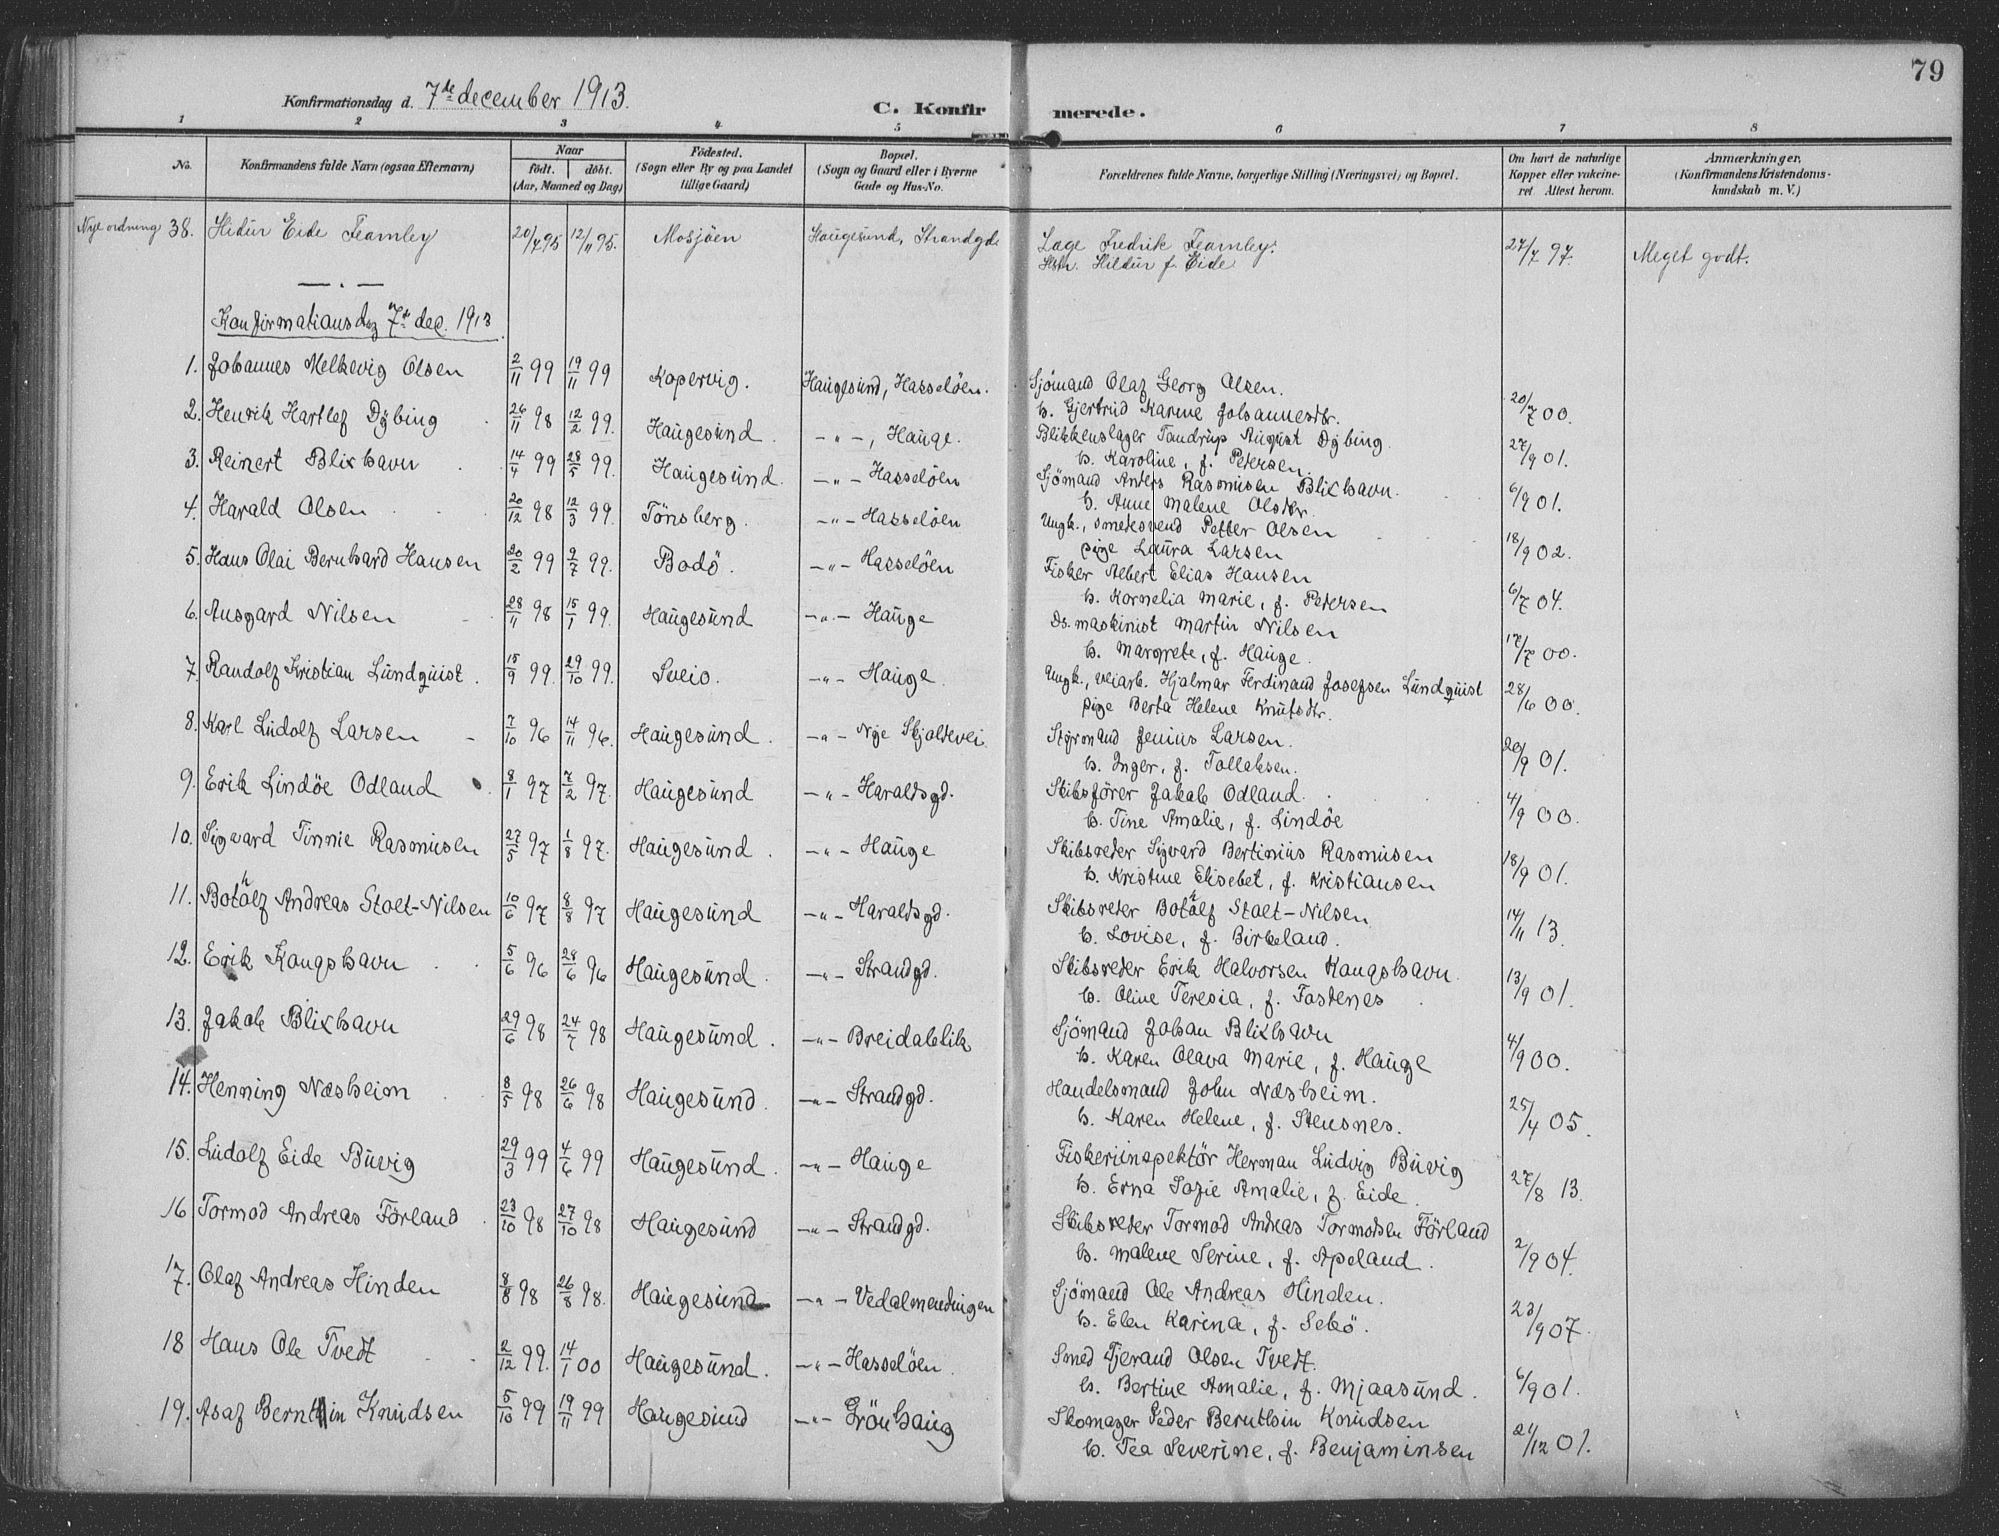 79
Konfirmationsdag d. 7de december 1913.
C. Konfirmerede.
1 2 3 4 5 6 7 8
No. Konfirmandens fulde Navn (ogsaa Efternavn) Naar født. døbt. (Aar, Maaned og Dag) Fødested. (Sogn eller By og paa Landet tillige Gaard) Bopæl. (Sogn og Gaard eller i Byerne Gade og Hus-No. Forældrenes fulde Navne, borgerlige Stilling (Næringsvei) og Bopæl. Om havt de naturlige Kopper eller vakcineret. Attest herom. Anmærkninger. (Konfirmandens Kristendomskundskab m. V.)
Nye ordning 38. Hidur Eide Fearnley 20/7 95 12/11 95. Mosjöen Haugesund, Strandgde Lage Fredrik Fearnley. 27/7 97. Meget godt.
Hstr. Hildur f. Eide
Konfirmationsdag 7de dec. 1913.
1. Johannes Melkevig Olsen 2/11 99 19/11 99 Kopervig. Haugesund, Hasselöen. Sjömand Olaf Georg Olsen. 20/7 00.
h. Gjertrud Karine Johannesdtr.
2. Henrik Hartlef Dybing 26/11 98 12/2 99. Haugesund. -"-, Hauge. Blikkenslager Tandrup August Dybing. 27/9 01.
h. Karoline, f. Petersen.
3. Reinert Blixhavn 14/4 99 28/5 99. Haugesund. -"- Hasselöen Sjömand Anders Rasmusen Blixhavn. 6/9 01.
h. Anne Malene Olsdtr.
4. Harald Olsen 20/12 98 12/3 99. Tönsberg. -"- Hasselöen Ungk., smedsvend Petter Olsen 18/9 02.
pige Laura Larsen
5. Hans Olai Bernhard Hansen 20/2 99 2/7 99. Bodö. -"- Hasselöen Fisker Albert Elias Hansen 6/7 04.
h. Kornelia Marie, f. Petersen
6. Ansgard Nilsen 28/11 98 15/1 99. Haugesund -"- Hauge Ds. maskinist Martin Nilsen 17/7 00.
h. Margrete, f. Hauge.
7. Randolf Kristian Lundquist. 15/9 99. 29/10 99. Sveio. -"- Hauge. Ungk., veiarb. Hjalmar Ferdinand Josefsen Lundquist 28/6 00.
pige Berta Helene Knutsdtr.
8. Karl Ludolf Larsen 7/10 96 14/11 96. Haugesund. -"- Nye Skjoldevei Styrmand Jenius Larsen. 20/9 01.
h. Inger, f. Tollaksen.
9. Erik Lindöe Odland 8/1 97 7/2 97. Haugesund -"- Haraldsgd. Skibsförer Jakob Odland. 4/9 00.
h. Tine Amalie, f. Lindöe
10. Sigvard Tinnie Rasmusen 27/5 97 1/8 97. Haugesund. -"- Hauge Skibsreder Sigvard Bertinius Rasmusen 18/9 01.
h. Kristine Elisebet, f. Kristiansen
11. Botolf Andreas Stolt-Nilsen 10/6 97 8/8 97 Haugesund -"- Haraldsgd. Skibsreder Botolf Stolt-Nilsen 14/11 13.
h. Lovise, f. Birkeland.
12. Erik Kongshavn 5/6 96 28/6 96 Haugesund. -"- Strandgd. Skibsreder Erik Halvorsen Kongshavn. 13/9 01.
h. Oline Teresia, f. Fosdenes
13. Jakob Blixhavn 29/6 98 24/7 98 Haugesund. -"- Breidablik Sjömand Johan Blixhavn 4/9 00.
h. Karen Olava Marie, f. Hauge
14. Henning Næsheim 8/5 98 26/6 98 Haugesund. -"- Strandgd. Handelsmand John Næsheim. 25/4 05.
h. Karen Helene, f. Stensnes.
15. Ludolf Eide Buvig 29/3 99 4/6 99 Haugesund. -"- Hauge Fiskeriinspektör Herman Ludvig Buvig 27/8 13.
h. Erna Sofie Amalie, f. Eide.
16 Tormod Andreas Förland. 23/10 98 27/10 98 Haugesund -"- Strandgd. Skibsreder Tormod Andreas Tormodsen Förland 2/9 04.
h. Malene Serine, f. Apeland.
17. Olaf Andreas Hinden 8/8 98 26/8 98. Haugesund -"- Vedalmendingen Sjömand Ole Andreas Hinden. 23/9 07.
h. Elen Karina, f. Sebö.
18 Hans Ole Tvedt 2/12 99. 14/1 00 Haugesund. -"- Hasselöen. Smed Tjerand Olsen Tvedt. 6/9 01.
h. Bertine Amalie, f. Mjaasund.
19. Asaf Bernthin Knudsen 5/10 99 19/11 99 Haugesund -"- Grönhaug Skomager Peder Bernthin Knudsen 21/12 01.
h. Tea Severine, f. Benjaminsen